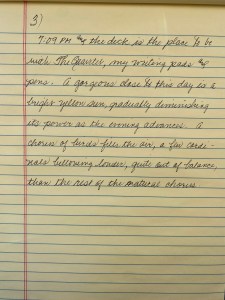 3)
7:09 PM & the deck is the place to be
with The Quarter, my writing pads &
pens. A gorgeous close to this day is a
bright yellow sun, gradually diminishing
its power as the evening advances. A
chorus of birds fills the air, a few cardi-
nals bellowing louder, quite out of balance,
than the rest of the natural chorus.